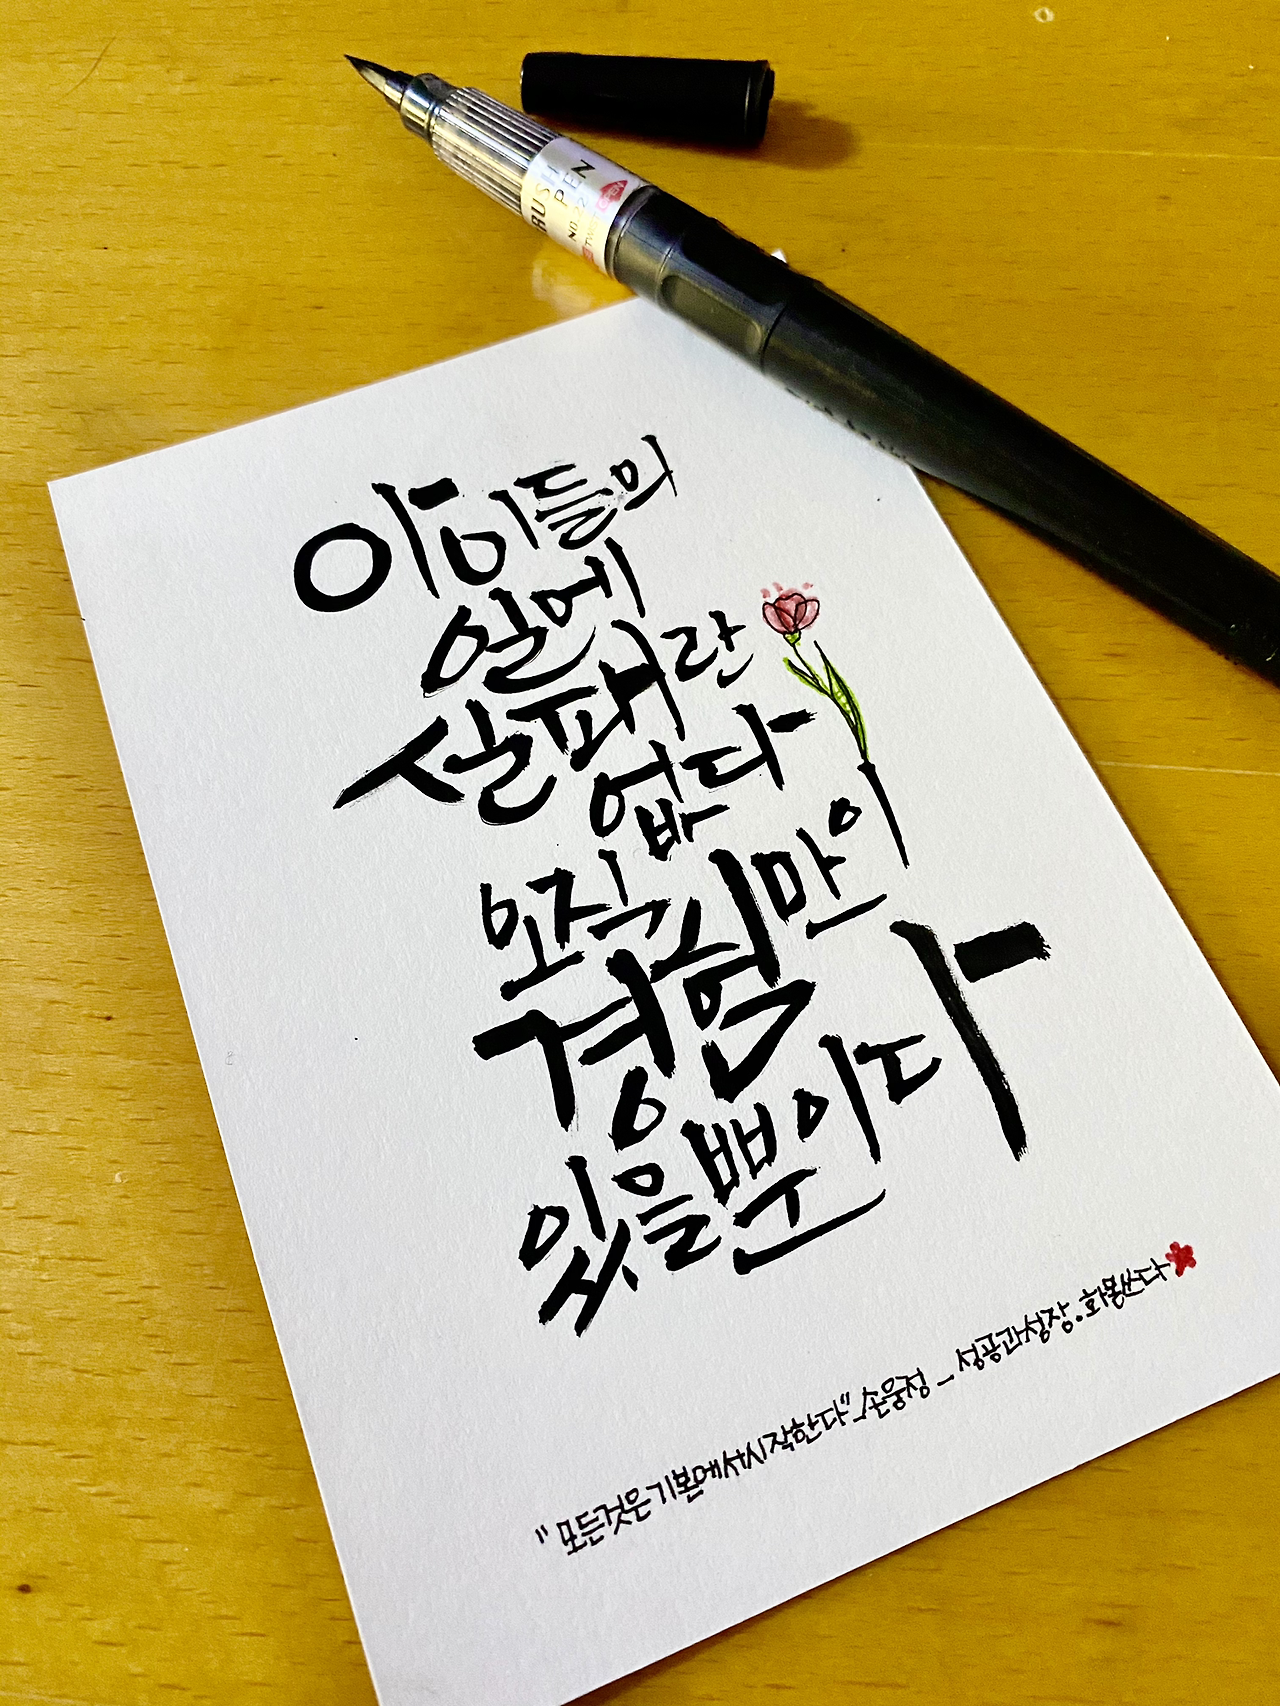 BRUSH
PEN
NO.22
아이들의
일에
실패란
없다
오직
경험만이
있을뿐이다
"모든것은기본에서시작한다"-손웅정 - 성공과성장.화몽쓰다